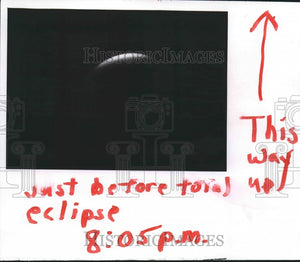 HISTORICIMAGES
This
way
up
Just before total
eclipse
8:05 p.m.
HISTORICIMAGES